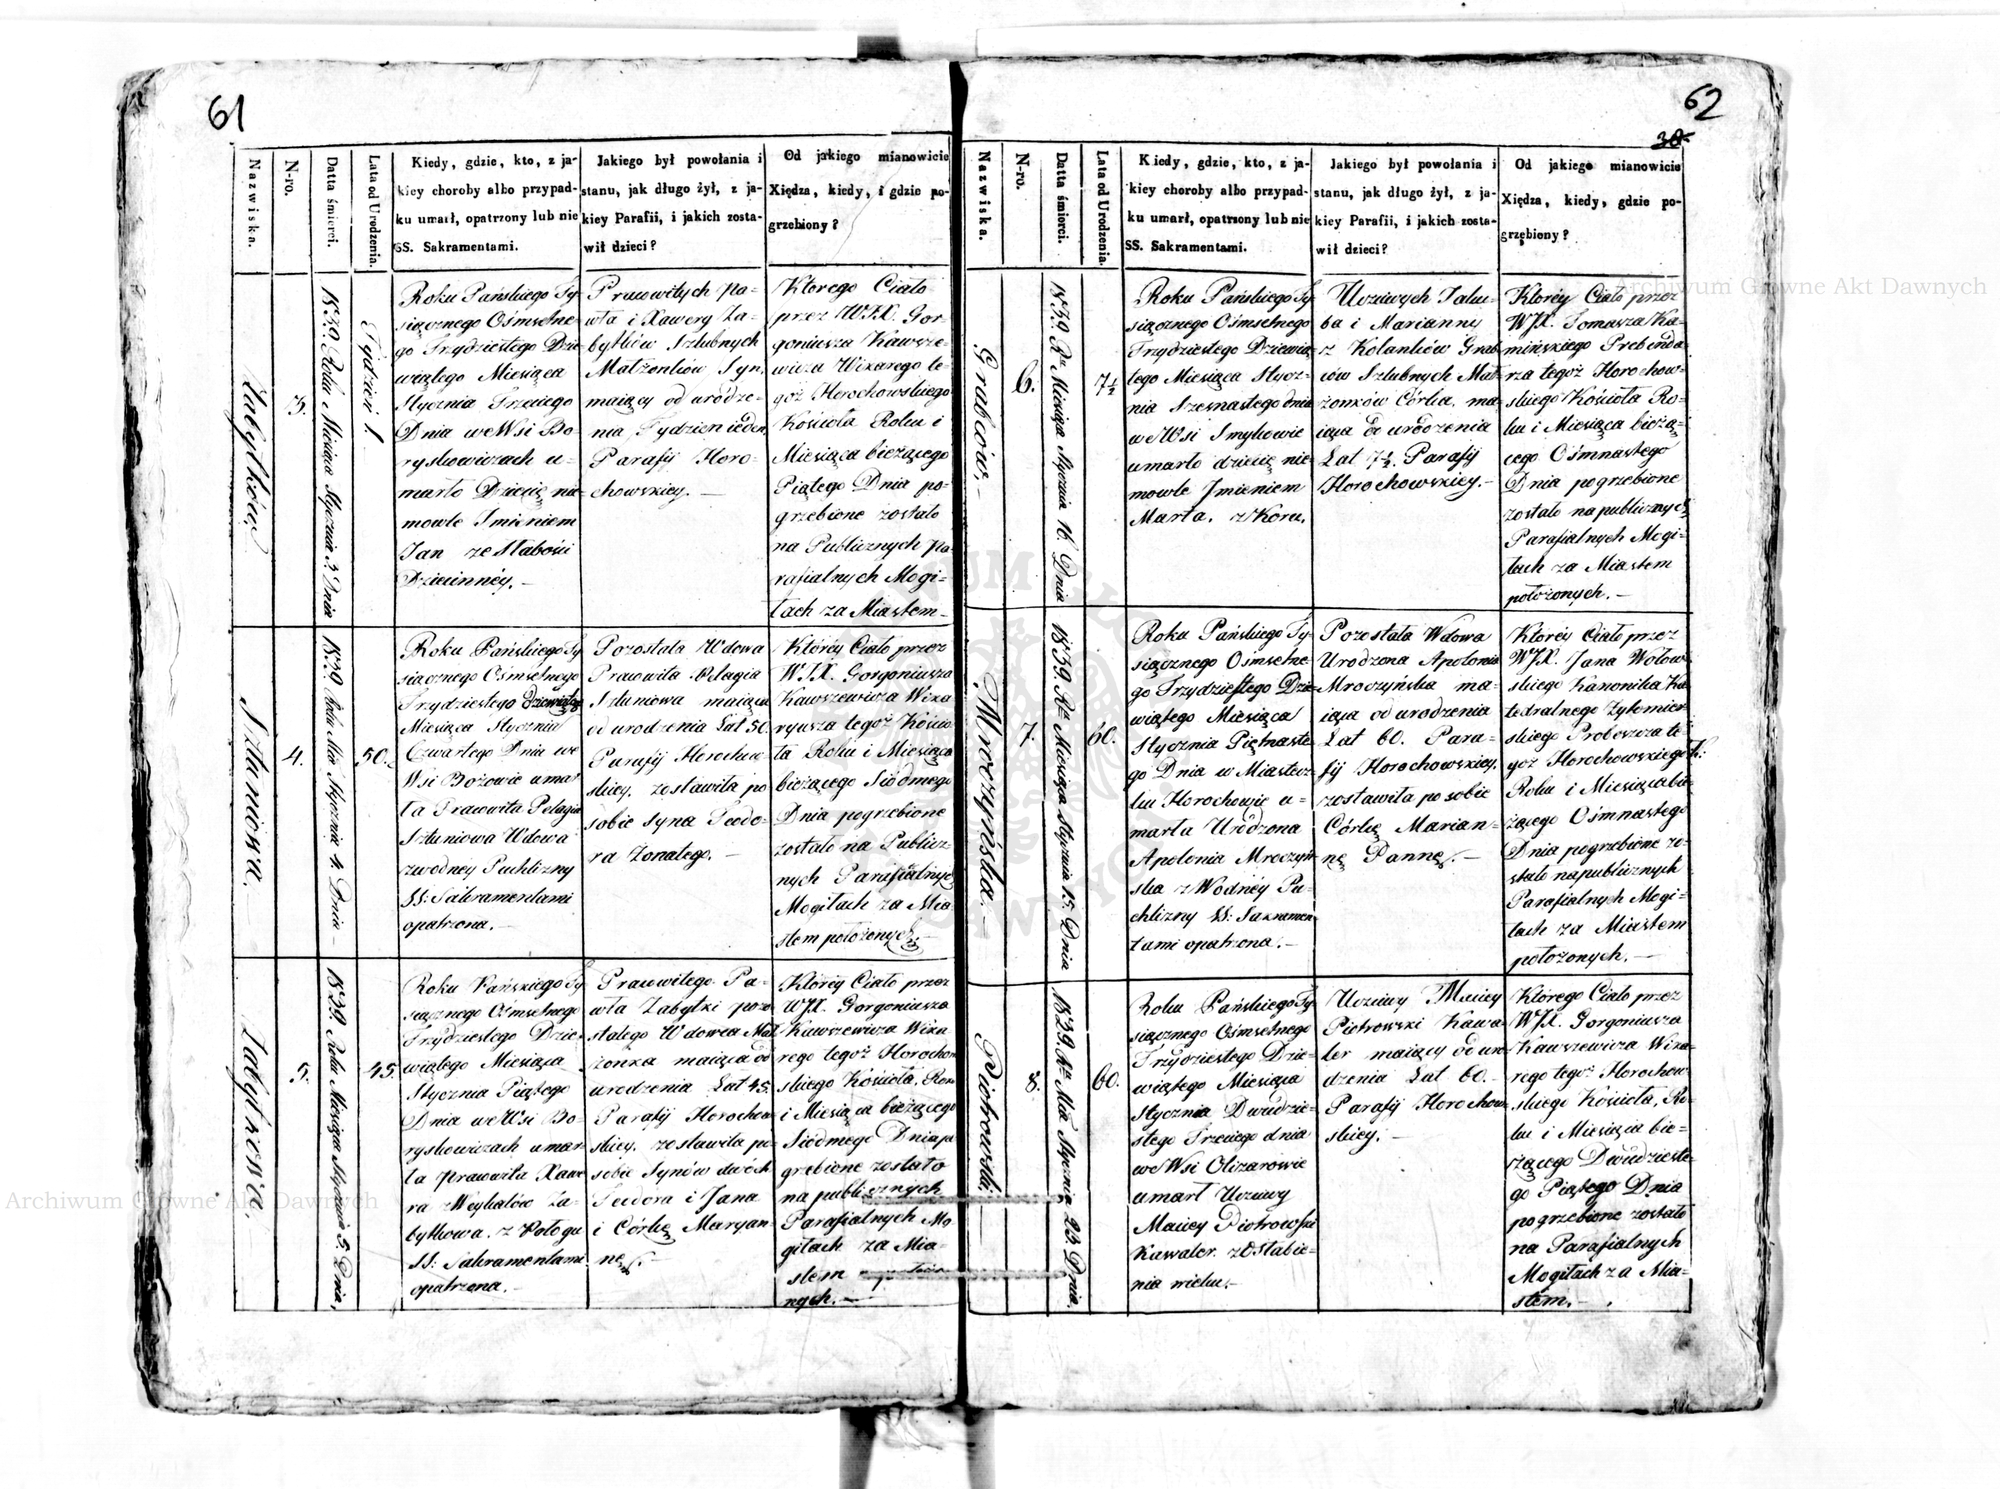 61
Nazwiska.
N-ro.
Datta śmierci.
Lata od Urodzenia.
Kiedy, gdzie, kto, z ja-
kiey choroby albo przypad-
ku umarł, opatrzony lub nie
SS. Sakramentami.
Jakiego był powołania i
stanu, jak długo żył, z ja-
kiey Parafii, i jakich zosta-
wił dzieci?
Od jakiego mianowicie
Xiędza, kiedy, i gdzie po-
grzebiony?
Zabytków
3.
1839 Roku Miesiąca Stycznia 3. Dnia
Tydzień 1.
Roku Pańskiego Ty-
siącznego Ośmsetne-
go Trzydziestego Dzie-
wiątego Miesiąca
Stycznia Trzeciego
Dnia we Wsi Bo-
ryskowiczach u-
marło Dziecię nie-
mowle Imieniem
Jan ze Słabości
Dziecinnéy. —
Prawowitych Pa-
wła i Xawery Za-
bytków Szlubnych
Małżonków Syn,
maiący od urodze-
nia Tydzien ieden
Parafij Horo-
chowskiey. —
Ktorego Ciało
przez WJX. Gor-
goniusza Kawsze-
wicza Wikarego te-
goż Horochowskiego
Kościoła Roku i
Miesiąca bieżącego
Piątego Dnia po-
grzebione zostało
na Publicznych Pa-
rafialnych Mogi-
łach za Miastem —
Szluniowa. —
4.
1839 Roku Mca Stycznia 4. Dnia —
50.
Roku Pańskiego Ty-
siącznego Ośmsetnego
Trzydziestego Dziewiątego
Miesiąca Stycznia
Czwartego Dnia we
Wsi Bożowie umar-
ła Prawowita Pelagia
Szluniowa Wdowa
z wodney Puchlizny
SS: Sakramentami
opatrzona. —
Pozostała Wdowa
Prawowita Pelagia
Szluniowa maiąca
od urodzenia Lat 50.
Parafij Horochow-
skiey. zostawiła po
sobie syna Teodo-
ra żonatego. —
Któréy Ciało przez
WJX. Gorgoniusza
Kawszewicza Wika-
ryusza tegoż Kościo-
ła Roku i Miesiąca
bieżącego Siódmego
Dnia pogrzebione
zostało na Publicz-
nych Parafialnych
Mogiłach za Mia-
stem położonych. —
Zabytkowa. —
5.
1839 Roku Miesiąca Stycznia 5. Dnia,
45.
Roku Pańskiego Ty-
siącznego Ośmsetnego
Trzydziestego Dzie-
wiątego Miesiąca
Stycznia Piątego
Dnia we Wsi Bo-
ryskowiczach umar-
ła Prawowita Xawe-
ra z Za-
bytkowa. z Połogu
SS: Sakramentami
opatrzona. —
Prawowitego Pa-
wła Zabytki pozo-
stałego Wdowca Mał-
żonka maiąca od
urodzenia Lat 45.
Parafij Horochow-
skiey. zostawiła po
sobie Synów dwóch
Teodora i Jana
i Córkę Maryan-
nę. —
Któréy Ciało przez
WJX. Gorgoniusza
Kawszewicza Wika-
rego tegoż Horochow-
skiego Kościoła, Roku
i Miesiąca bieżącego
Siódmego Dnia po-
grzebione zostało
na publicznych
Parafialnych Mo-
giłach za Mia-
stem położo-
nych. —
62
30
Nazwiska.
N-ro.
Datta śmierci.
Lata od Urodzenia.
Kiedy, gdzie, kto, z ja-
kiey choroby albo przypad-
ku umarł, opatrzony lub nie
SS. Sakramentami.
Jakiego był powołania i
stanu, jak długo żył, z ja-
kiey Parafii, i jakich zosta-
wił dzieci?
Od jakiego mianowicie
Xiędza, kiedy, gdzie po-
grzębiony?
Grabców. —
6.
1839 Rn Miesiąca Stycznia 16. Dnia
7½
Roku Pańskiego Ty-
siącznego Ośmsetnego
Trzydziestego Dziewią-
tego Miesiąca Stycz-
nia Szesnastego dnia
we Wsi Smykowie
umarło dziecię nie-
mowle Jmieniem
Marta. z Koru.
Uczciwych Jaku-
ba i Marianny
z Kolanków Grab-
ców Szlubnych Mał-
żonków Córka. ma-
iąca od urodzenia
Lat 7½. Parafij
Horochowskiey. —
Któréy Ciało przez
WJX. Tomasza Ka-
mińskiego Prebenda-
rza tegoż Horochow-
skiego Kościoła Ro-
ku i Miesiąca bieżą-
cego Ośmnastego
Dnia pogrzebione
zostało na publicznych
Parafialnych Mogi-
łach za Miastem
położonych. —
Mroczyńska. —
7.
1839. Rn Miesiąca Stycznia 15. Dnia
60.
Roku Pańskiego Ty-
siącznego Ośmsetne-
go Trzydziestego Dzie-
wiątego Miesiąca
Stycznia Piętnaste-
go Dnia w Miastecz-
ku Horochowie u-
marła Urodzona
Apolonia Mroczyń-
ska z Wodnéy Pu-
chlizny SS: Sakramen-
tami opatrzona. —
Pozostała Wdowa
Urodzona Apolonia
Mroczyńska ma-
iąca od urodzenia
Lat 60. Para-
fij Horochowskiey.
zostawiła po sobie
Córkę Marian-
nę Pannę. —
Któréy Ciało przez
WJX. Jana Wołow-
skiego Kanonika Ka-
tedralnego Żytomier-
skiego Proboszcza te-
goż Horochowskiego K:
Roku i Miesiąca bie-
żącego Ośmnastego
Dnia pogrzebione zo-
stało na publicznych
Parafialnych Mogi-
łach za Miastem
położonych. —
Piotrowski.
8.
1839. Rn Mca Stycznia 23. Dnia.
60.
Roku Pańskiego Ty-
siącznego Ośmsetnego
Trzydziestego Dzie-
wiątego Miesiąca
Stycznia Dwudzie-
stego Trzeciego dnia
we Wsi Olizarowie
umarł Uczciwy
Maciey Piotrowski
Kawaler. z Osłabie-
nia wieku. —
Uczciwy Maciey
Piotrowski Kawa-
ler maiący od uro-
dzenia Lat 60. —
Parafij Horochow-
skiey. —
Którego Ciało przez
WJX. Gorgoniusza
Kawszewicza Wika-
rego tegoż Horochow-
skiego Kościoła, Ro-
ku i Miesiąca bie-
żącego Dwudzieste-
go Piątego Dnia
pogrzebione zostało
na Parafialnych
Mogiłach za Mia-
stem. —
Archiwum Główne Akt Dawnych
Archiwum Główne Akt Dawnych